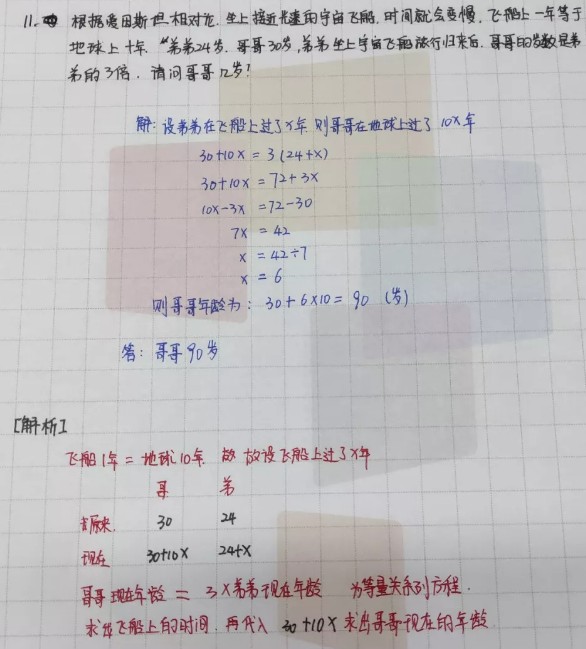 11. 根据爱因斯坦相对论,坐上接近光速的宇宙飞船,时间就会变慢,飞船上一年等于
地球上十年。“弟弟24岁,哥哥30岁,弟弟坐上宇宙飞船旅行归来后,哥哥的岁数是弟
弟的3倍,请问哥哥几岁?
解:设弟弟在飞船上过了x年 则哥哥在地球上过了 10x年
30+10x = 3(24+x)
30+10x = 72+3x
10x-3x = 72-30
7x = 42
x = 42÷7
x = 6
则哥哥年龄为: 30+6×10= 90 (岁)
答: 哥哥90岁
[解析]
飞船1年 = 地球10年 故设飞船上过了x年
哥 弟
原来 30 24
现在 30+10x 24+x
哥哥现在年龄 = 3×弟弟现在年龄 为等量关系列方程.
求出飞船上的时间,再代入 30+10x 求出哥哥现在的年龄